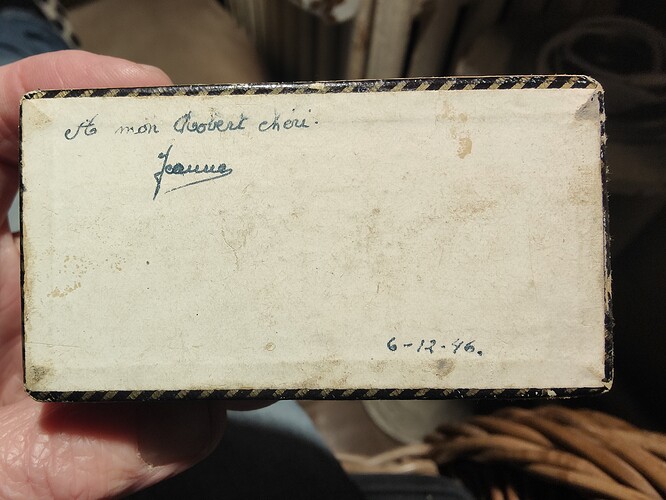 A mon Robert chéri.
Jeanne
6-12-46.